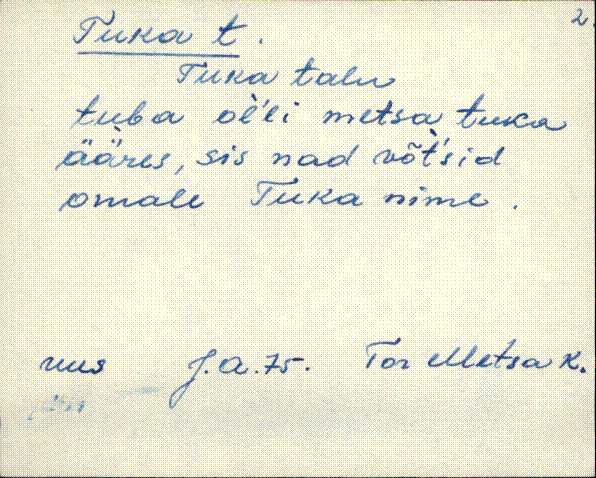 2.
Tuka t.
Tuka talu
tuba oĺ'li metsa tuka
ääres, sis nad võt'sid
omale Tuka nime.
uus J.A.75. Tor Metsa k.